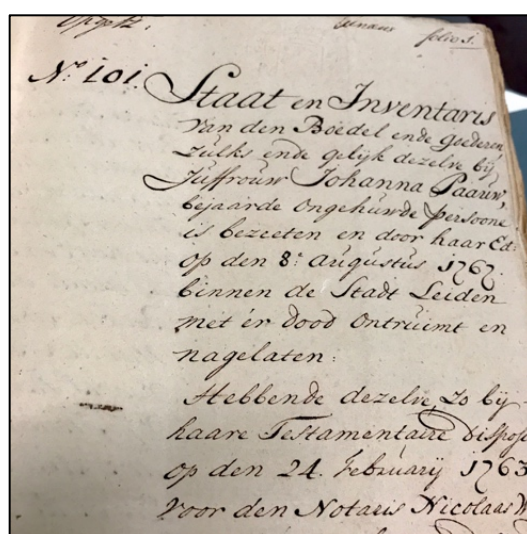 folio 1.
N:o 101.
Staat en Inventaris
van den Boedel ende goederen
zulks ende gelijk dezelve bij
Juffrouw Johanna Paauw,
bejaarde ongehuwde persoone
is bezeeten en door haar Ed:
op den 8: augustus 1767.
binnen de Stadt Leiden
met 'er dood ontruimt en
nagelaten:
Hebbende dezelve, zo bij
haare Testamentaire disposi
op den 24. februarij 1763
voor den Notaris Nicolaas W